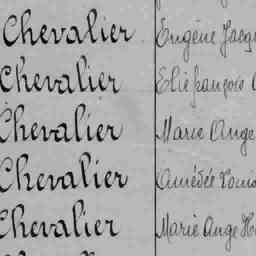 Chevalier Eugène Jacq
Chevalier Elie françois
Chevalier Marie Ange
Chevalier Amédée Louis
Chevalier Marie Ange